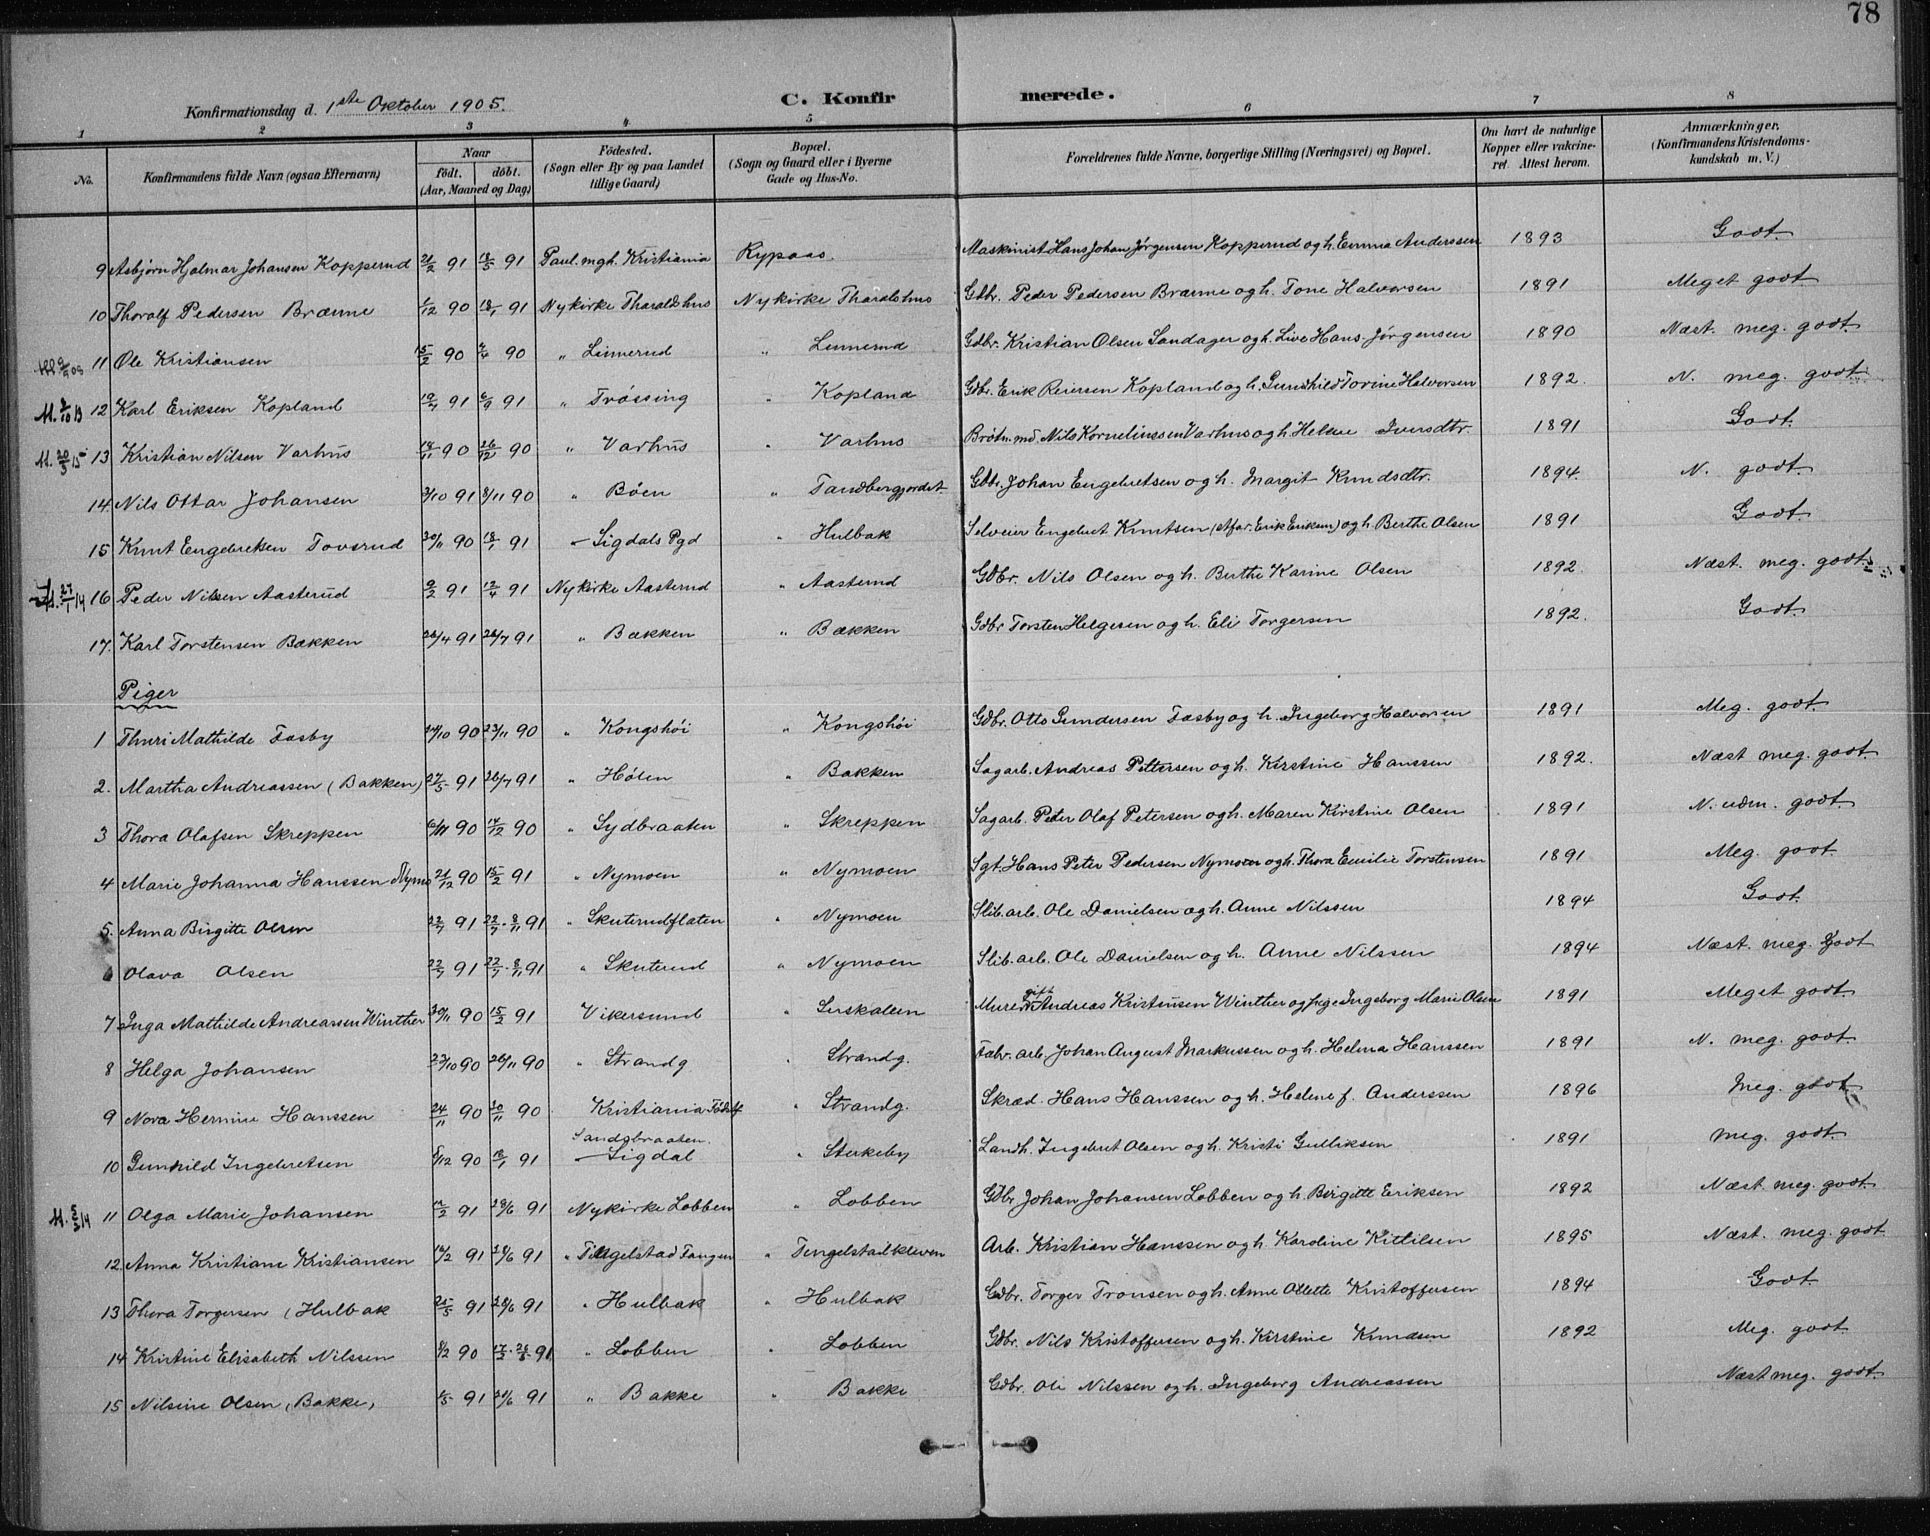 78
Konfirmationsdag d. 1ste Oktober 1905.
C. Konfirmerede.
1 2 3 4 5 6 7 8
No.
Konfirmandens fulde Navn (ogsaa Efternavn)
Naar født. døbt. (Aar, Maaned og Dag)
Fødested. (Sogn eller By og paa Landet tillige Gaard)
Bopæl. (Sogn og Gaard eller i Byerne Gade og Hus-No.
Forældrenes fulde Navne, borgerlige Stilling (Næringsvei) og Bopæl.
Om havt de naturlige Kopper eller vaccineret. Attest herom.
Anmærkninger. (Konfirmandens Kristendomskundskab m. V.)
9 Asbjørn Hjalmar Johansen Kopperud 21/2 91 18/5 91 Paul. mgh. Kristiania Rypaas. Maskinist Hans Johan Jørgensen Kopperud og h. Emma Anderssen 1893 Godt.
10 Thoralf Pedersen Brænne /12 90 18/1 91 Nykirke Tharaldshus Nykirke Tharalshus Gdbr. Peder Pedersen Brænne og h. Tone Halvorsen 1891 Meget godt
11 Ole Kristiansen 15/2 90 7/4 90 " Linnerud " Linnerud Gdbr. Kristian Olsen Sandager og h. Live Hans-Jørgensen 1890 Næst. meg. godt.
12 Karl Eriksen Kopland 19/4 91 6/9 91 " Trøssing " Kopland Gdbr. Erik Reiersen Kopland og h. Gunhild Tovine Halvorsen 1892. N. meg. godt
M. 20/3 15 13 Kristian Nilsen Varhus 14/11 90 26/12 90 " Varhus " Varhus Nils Korneliussen Varhus og h. Helene Iversdtr. 1891 Godt.
14. Nils Ottar Johansen 3/10 91 8/11 90 " Bøen " Tandbergjordet Gdbr. Johan Engebretsen og h. Margit Knudsdtr. 1894. N. godt.
15 Knut Engebretsen Tovsrud 30/11 90 18/1 91 - Sigdals Pgd " Hulbak Selveier Engebret Knutsen (stfar. Erik Eriksen) og h. Berthe Olsen 1891 Godt.
27/1 14 16 Peder Nilsen Aasterud 9/2 91 12/4 91 Nykirke Aasterud " Aasterud Gdbr. Nils Olsen og h. Berthe Karine Olsen 1892. Næst. meg. godt.
17. Karl Torstensen Bækken 26/4 91 26/7 91 " Bækken " Bækken Gdbr Torsten Helgesen og h. Eli Torgersen 1892. Godt.
Piger
1 Thuri Mathilde Fasby 24/10 90 23/11 90 " Kongshøi " Kongshøi Gdbr. Otto Gundersen Fasby og h. Ingeborg Halvorsen 1891 Meg. godt.
2. Martha Andreassen (Bakken) 27/5 91 26/7 91 " Hølen " Bakken Sagarb. Andreas Pettersen og h. Kirstine Hanssen 1892. Næst meg. godt.
3 Thora Olafsen Skreppen 6/11 90 14/12 90 " Sydbraaten " Skreppen Sagarb. Peter Olaf Petersen og h. Maren Kirstine Olsen 1891 N. udm. godt.
4 Marie Johanna Hanssen Nymo 21/12 90 15/2 91 " Nymoen " Nymoen Sgt. Hans Peter Pedersen Nymoen og h. Thora Emilie Torstensen 1891 Meg. godt.
5. Anna Birgitte Olsen 22/7 91 22/7 - 8/11 91 " Skuterudflaten " Nymoen Slib. arb. Ole Danielsen og h. Anne Nilssen 1894 Godt.
6 Olava Olsen 22/7 91 22/7 - 8/11 91 " Skuterud " Nymoen Slib. arb. Ole Danielsen og h. Anne Nilssen 1894 Næst. meg. godt
7 Inga Mathilde Andreassen Winther 30/11 90 15/2 91 Vikersund " Andreas Kristensen Winther og pige Ingeborg Marie Olsen 1891 Meget godt.
8 Helga Johansen 23/10 90 26/11 90 " Strandg " Strandg. Fabr. arb. Johan August Markussen og h. Helma Hanssen 1891 N. meg. godt.
9 Nora Hermine Hanssen 24/11 90 30/11 90 Kristiania Fødst " Strandg. Skræd. Hans Hanssen og h. Helene f. Anderssen 1896 Meg. godt.
10 Gunhild Ingebretsen 5/12 90 18/1 91 Sandsbraaten. - Sigdal " Sterkeby Landh. Ingebret Olsen og h. Kristi Gulliksen 1891 Meg. godt.
M. 5/3 14 11 Olga Marie Johansen 12/2 91 28/6 91 Nykirke Lobben " Lobben Gdbr Johan Johansen Lobben og h. Birgitte Eriksen 1892 Næst meg. godt.
12 Anna Kristiane Kristiansen 14/2 91 28/6 91 " Tingelstad Tangen " Tingelstadkleven Arb. Kristian Hanssen og h. Karoline Kittilsen 1895 Næst. meg. godt
13 Thora Torgersen (Hulbak 25/5 91 28/6 91 " Hulbak " Hulbak Gdbr. Torger Tronsen og h. Anne Olette Kristoffersen 1894 Godt.
14 Kristine Elisabeth Nilssen 8/12 90 91 " Lobben " Lobben Gdbr. Nils Kristoffersen og h. Kirstine Knudsen 1892 Meg. godt
15 Nilsine Olsen (Bakke) 91 28/6 91 " Bakke " Bakke Gdbr. Ole Nilssen og h. Ingeborg Andreassen Næst meg. godt